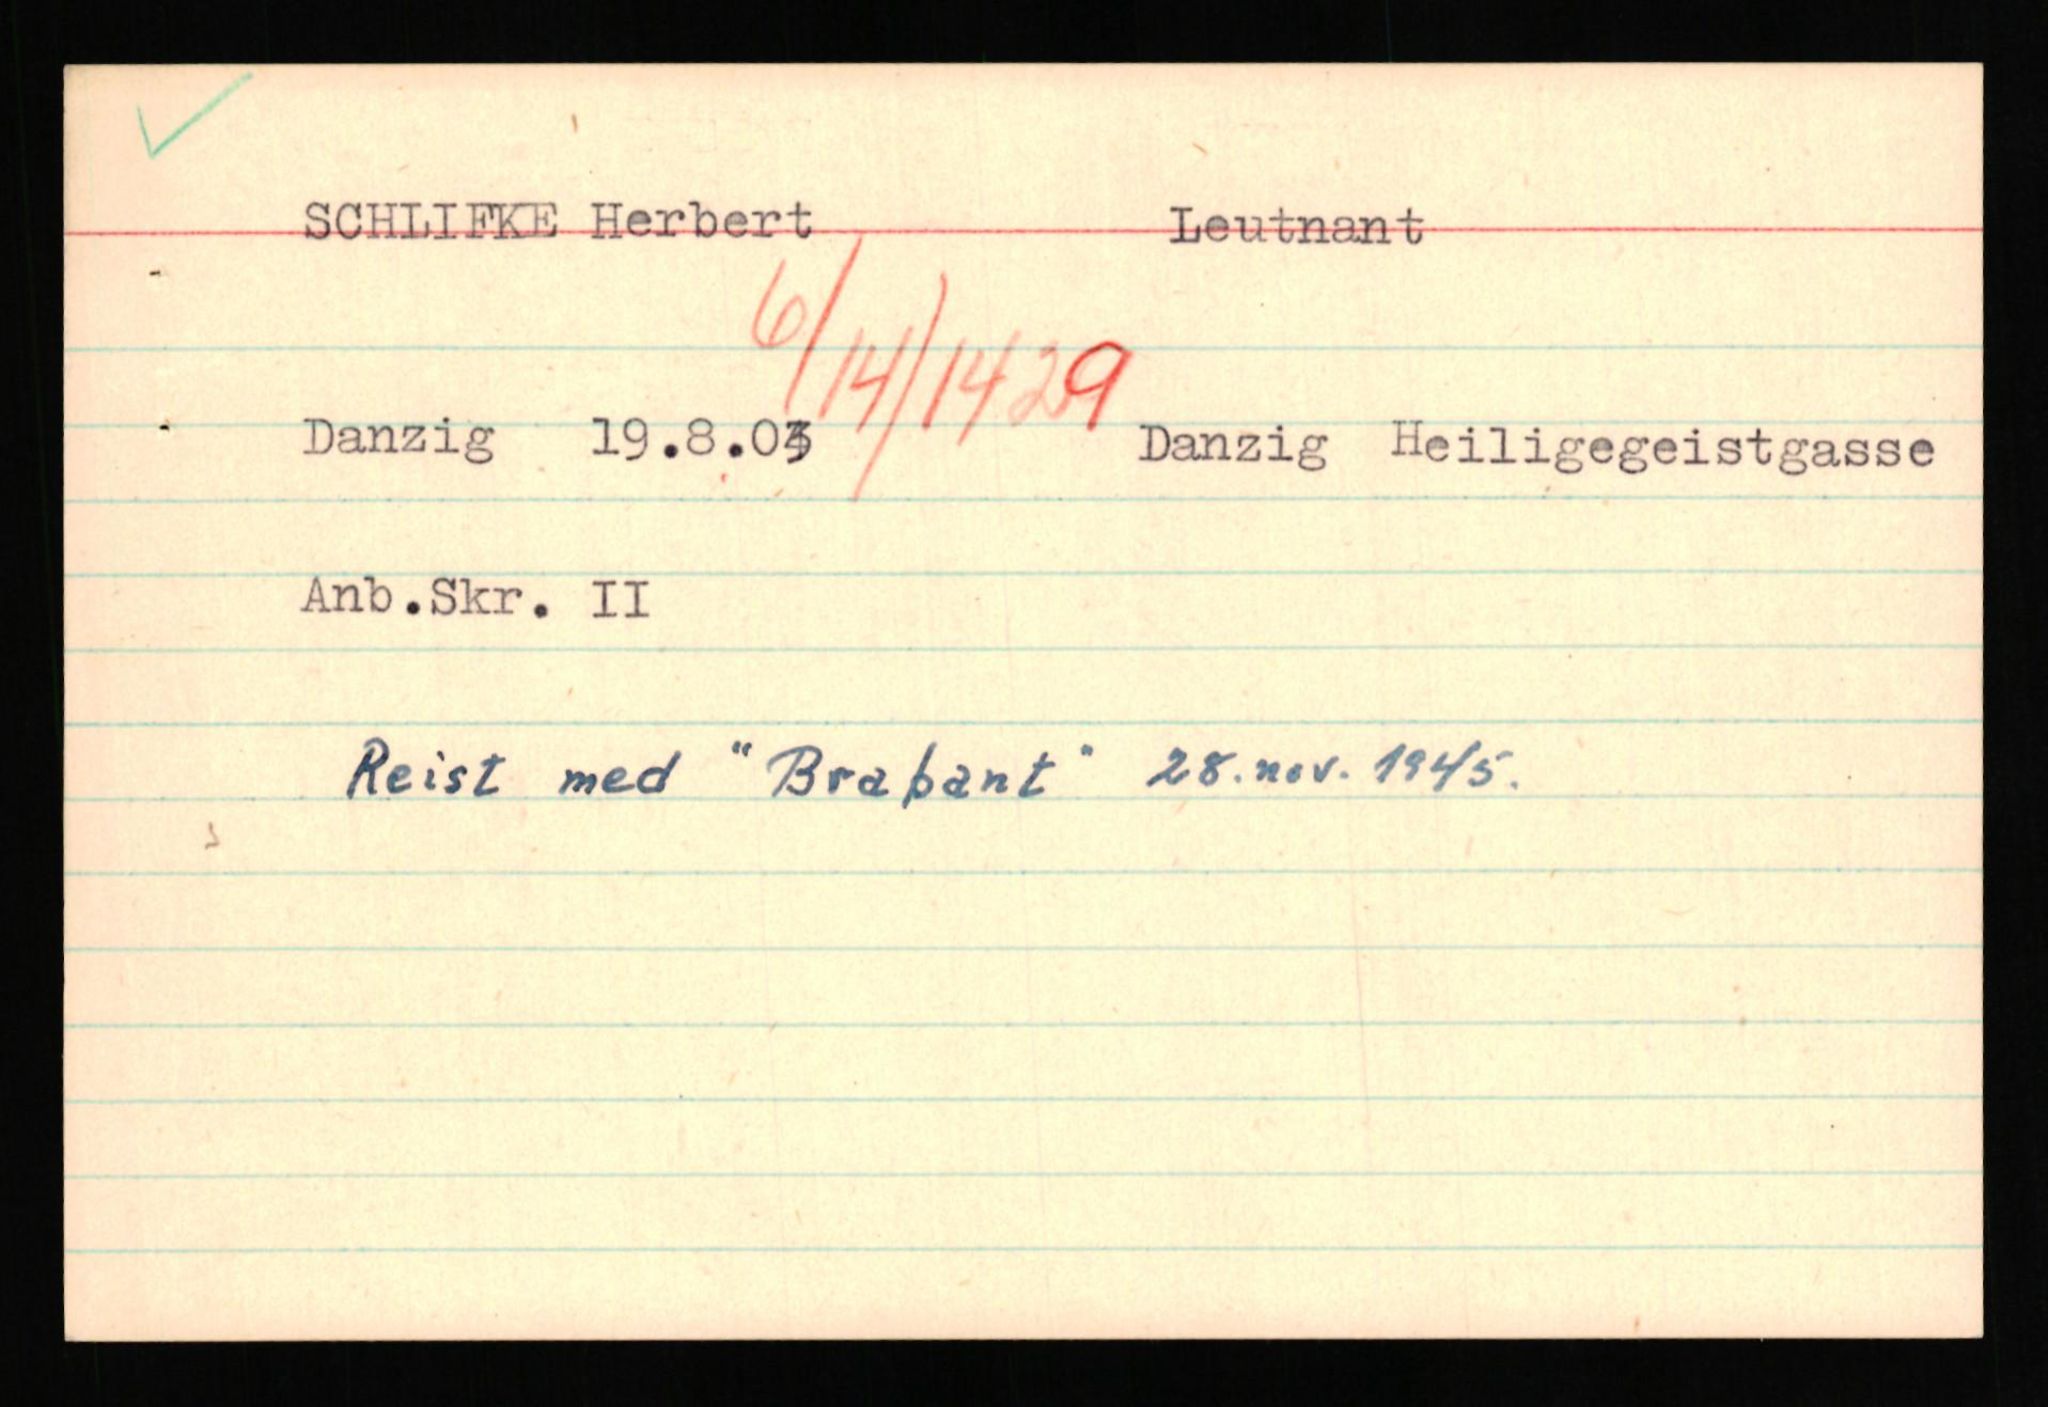 SCHLIFKE Herbert Leutnant
6/14/1429
Danzig 19.8.03 Danzig Heiligegeistgasse
Anb.Skr. II
Reist med "Brabant" 28. nov. 1945.